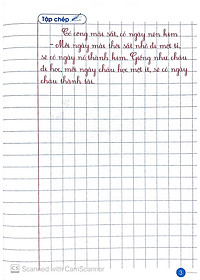 Tập chép
Có công mài sắt, có ngày nên kim
- Mỗi ngày mài thỏi sắt nhỏ đi một tí,
sẽ có ngày nó thành kim. Giống như cháu
đi học, mỗi ngày cháu học một ít, sẽ có ngày
cháu thành tài.
3
CS Scanned with CamScanner